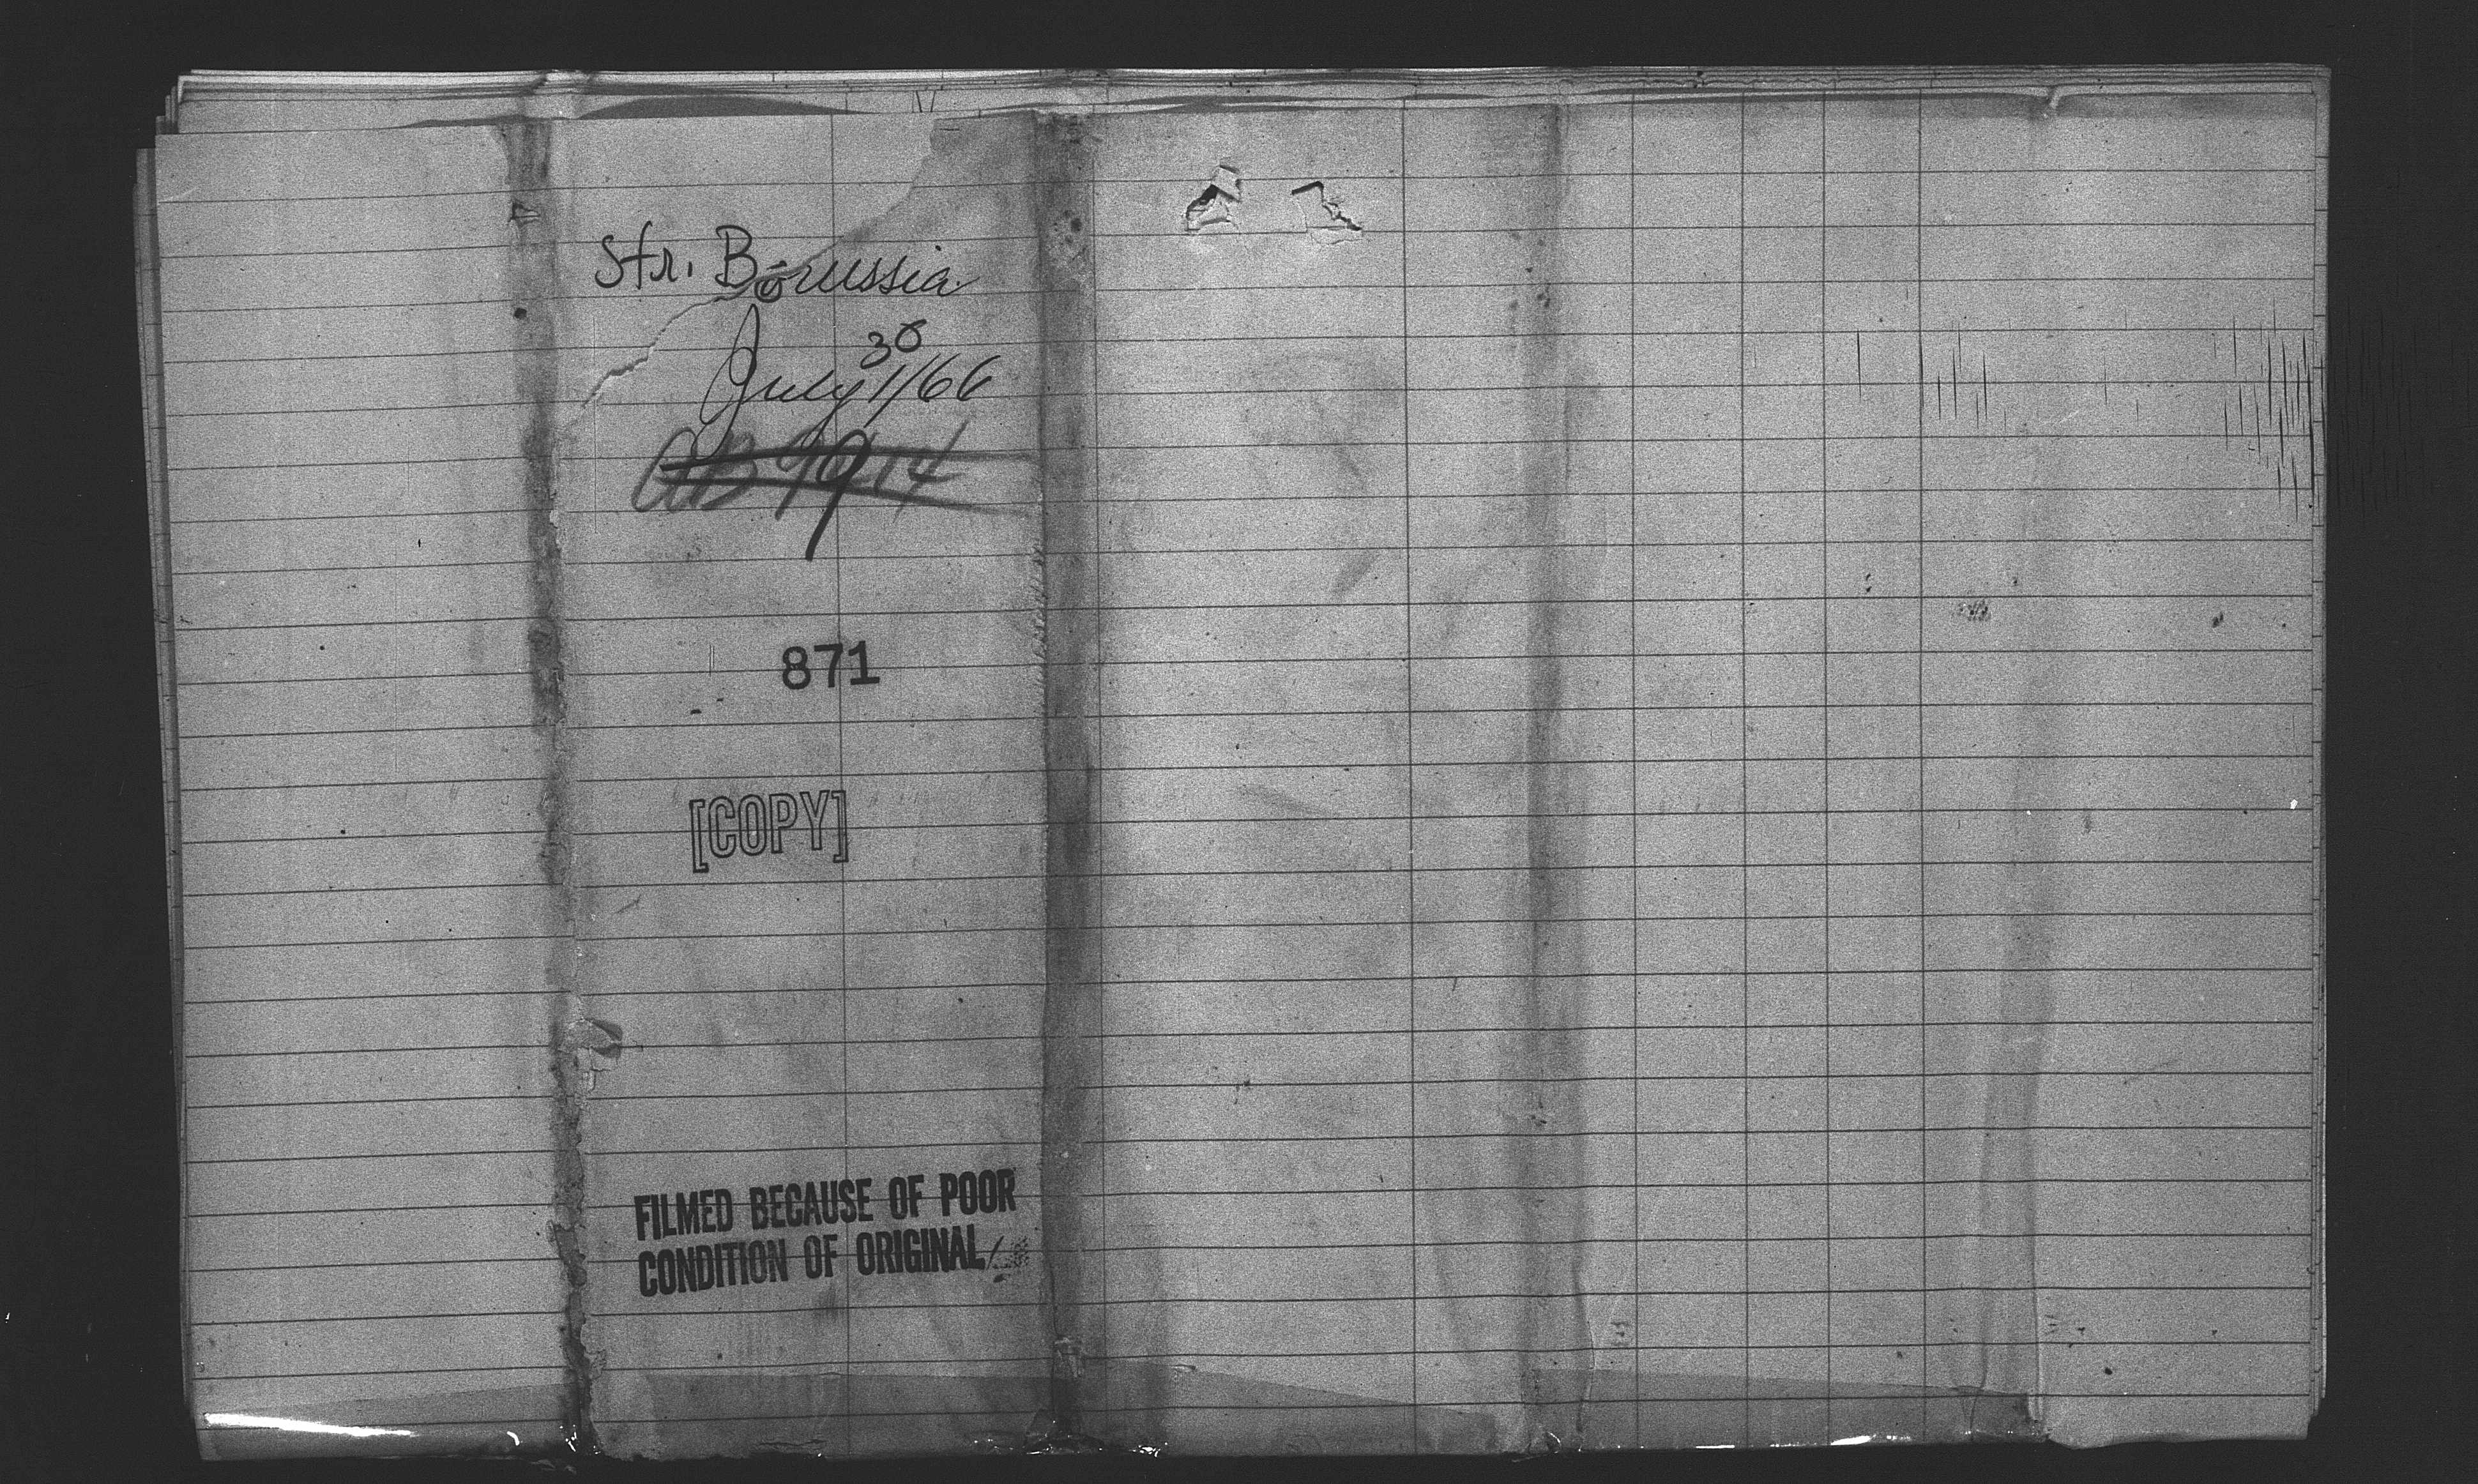 Str. Borussia
30
July 1/66
871
[COPY]
FILMED BECAUSE OF POOR
CONDITION OF ORIGINAL